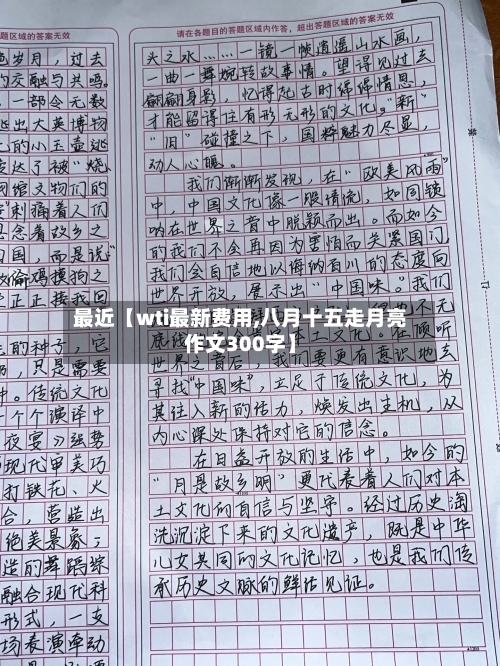 答题区域的答案无效
请在各题目的答题区域内作答，超出答题区域的答案无效
岁月，过去
的交融与共鸣。
一部令无数
逃出大英博物
的小玉壶逃
表达了被“烧、
网络文物们的
刺痛着人们
念着故乡之
国，而是说“
偷鸡摸狗之
正正接我回
的种子，它
奶，只是需要
中。传统文化
一个个演绎中
夜宴》强势
现代审美巧
打铁花、火
合，营造出
绝美景象；
造的舞蹈综
融合现代科
形式，一支
场表演牵动
头之水……一镜一帧逍遥山水画，
一曲一舞婉转故事情。望得见过去
翩翩身影，忆得起古时绵绵情思，
才能留得住有形无形的文化。“新”
“旧”碰撞之下，国粹魅力尽显，
动人心魄。
我们渐渐发现，在“欧美风雨”
中，中国文化像一股清流，如同锁
呐在世界之音中脱颖而出。而如今
的我们不会再因为害怕而关紧国门，
我们会自信地以海纳百川的态度向
世界开放，展示出“中国味”。我们
也不无
土文化。在倾听
世界之音后，我们要更有意识地去
寻找“中国味”，立足于传统文化，为
其注入新的活力，焕发出生机，从
内心深处保持对它的信念。
在日益开放的生活中，如今的
“月是故乡明”更代表着人们对本
土文化的自信与坚守。经过历史淘
洗沉淀下来的文化遗产，既是中华
儿女共同的文化记忆，也是我们传
承历史文脉的鲜活见证。
最近【wti最新费用,八月十五走月亮
作文300字】